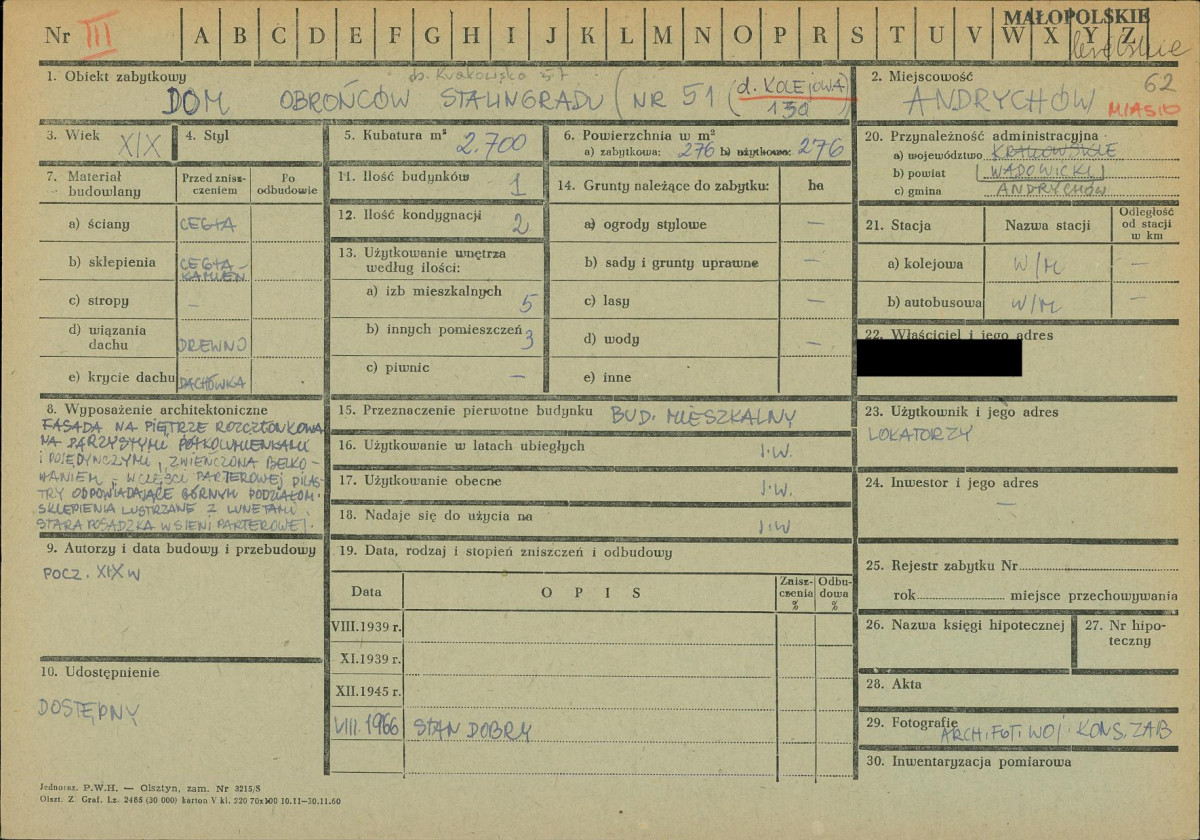 Nr III A B C D E F G H I J K L M N O P R S T U V W X Y Z
MAŁOPOLSKIE
1. Obiekt zabytkowy
ob. Krakowska 57
DOM OBROŃCÓW STALINGRADU (NR 51 (d. KOLEJOWA)
130
2. Miejscowość
62
ANDRYCHÓW MIASTO
3. Wiek XIX
4. Styl
5. Kubatura m³ 2.700
6. Powierzchnia w m²
a) zabytkowa: 276 b) użytkowa: 276
7. Materiał budowlany
Przed zniszczeniem
Po odbudowie
a) ściany CEGŁA
b) sklepienia CEGŁA-
KAMIEŃ
c) stropy –
d) wiązania dachu DREWNO
e) krycie dachu DACHÓWKA
8. Wyposażenie architektoniczne
FASADA NA PIĘTRZE ROZCZŁONKOWA
NA PARZYSTYMI PÓŁKOLUMIENKAMI
I POJEDYNCZYMI, ZWIEŃCZONA BELKO-
WANIEM, W CZĘŚCI PARTEROWEJ PILAS-
TRY ODPOWIADAJĄCE GÓRNYM PODZIAŁOM.
SKLEPIENIA LUSTRZANE Z LUNETAMI.
STARA POSADZKA W SIENI PARTEROWEJ.
9. Autorzy i data budowy i przebudowy
POCZ. XIX W
10. Udostępnienie
DOSTĘPNY
11. Ilość budynków 1
12. Ilość kondygnacji 2
13. Użytkowanie wnętrza
według ilości:
a) izb mieszkalnych 5
b) innych pomieszczeń 3
c) piwnic –
14. Grunty należące do zabytku: ha
a) ogrody stylowe –
b) sady i grunty uprawne –
c) lasy –
d) wody –
e) inne
15. Przeznaczenie pierwotne budynku BUD. MIESZKALNY
16. Użytkowanie w latach ubiegłych J.W.
17. Użytkowanie obecne J.W.
18. Nadaje się do użycia na J.W
19. Data, rodzaj i stopień zniszczeń i odbudowy
Data
O P I S
Zniszczenia %
Odbudowa %
VIII.1939 r.
XI.1939 r.
XII.1945 r.
VIII.1966 STAN DOBRY
20. Przynależność administracyjna
a) województwo KRAKOWSKIE
b) powiat WADOWICKI
c) gmina ANDRYCHÓW
21. Stacja
Nazwa stacji
Odległość od stacji w km
a) kolejowa W/M –
b) autobusowa W/M –
22. Właściciel i jego adres
23. Użytkownik i jego adres
LOKATORZY
24. Inwestor i jego adres
–
25. Rejestr zabytku Nr
rok miejsce przechowywania
26. Nazwa księgi hipotecznej
27. Nr hipoteczny
28. Akta
29. Fotografie
ARCH. FOT. WOJ. KONS. ZAB
30. Inwentaryzacja pomiarowa
Jednoraz. P.W.H. — Olsztyn, zam. Nr 3215/S
Olszt. Z Graf. Lz. 2485 (30 000) karton V kl. 220 70x100 10.11—30.11.60